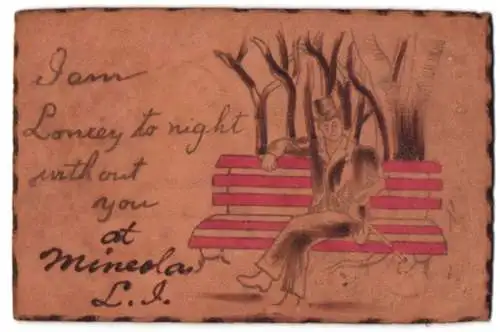 I am
Loneey to night
without
you
at
Mineola
L.I.